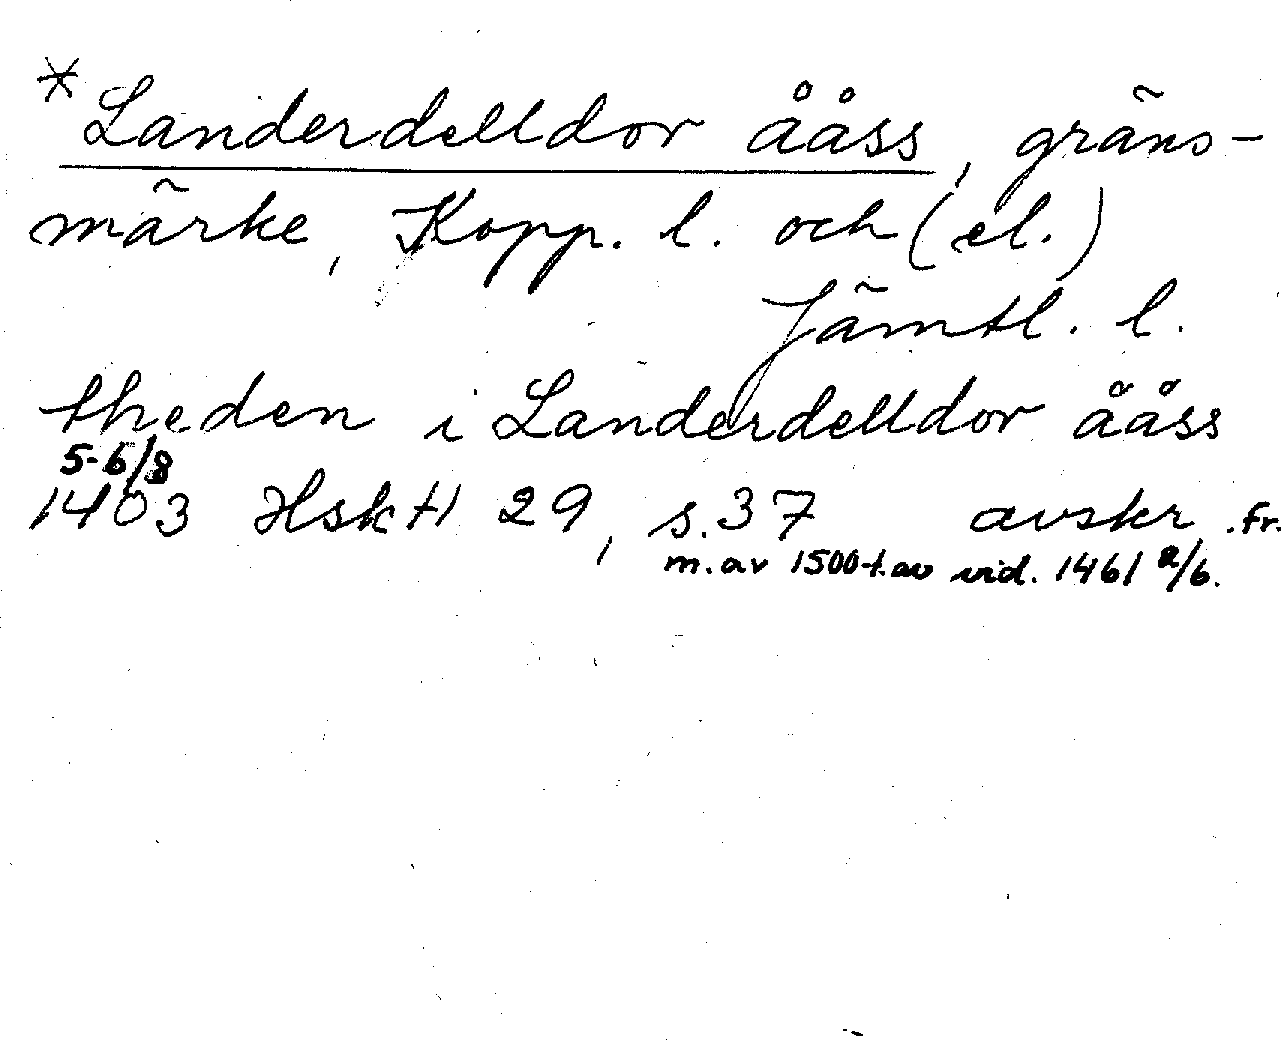 * Landerdelldor ååss, gräns-
märke, Kopp. l. och (el.)
Jämtl. l.
theden i Landerdelldor ååss
5-6/8
1403 HskH 29, s. 37 avskr. fr.
m. av 1500-t. av vid. 1461 2/6.